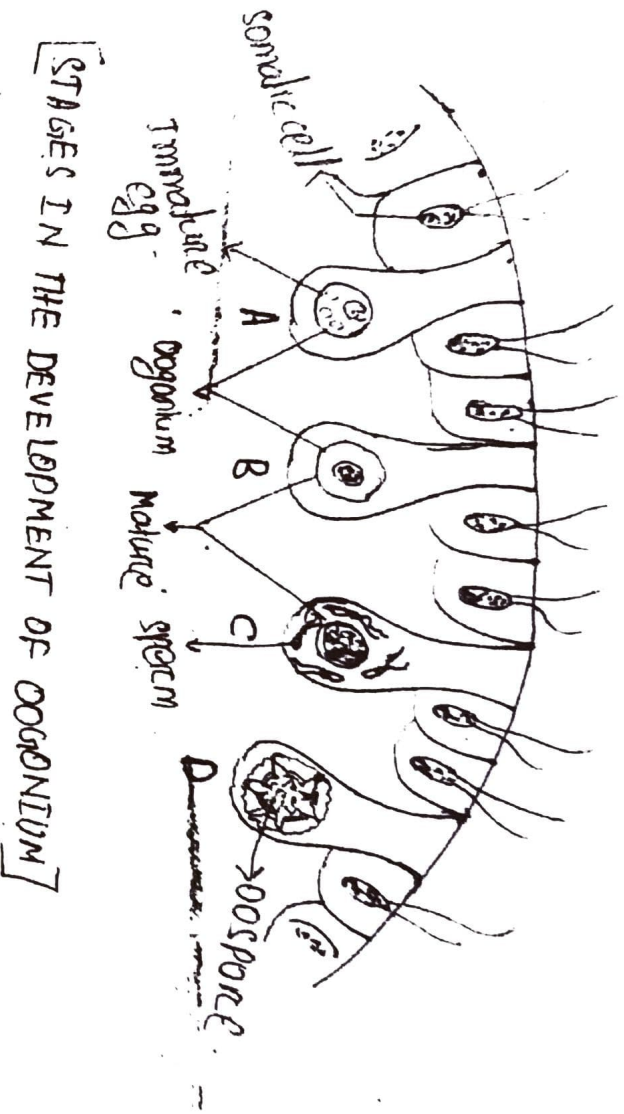 somatic cell
Immature
egg.
A
oogonium
B
Mature
sperm
C
D
OOSPORE.
[STAGES IN THE DEVELOPMENT OF OOGONIUM]